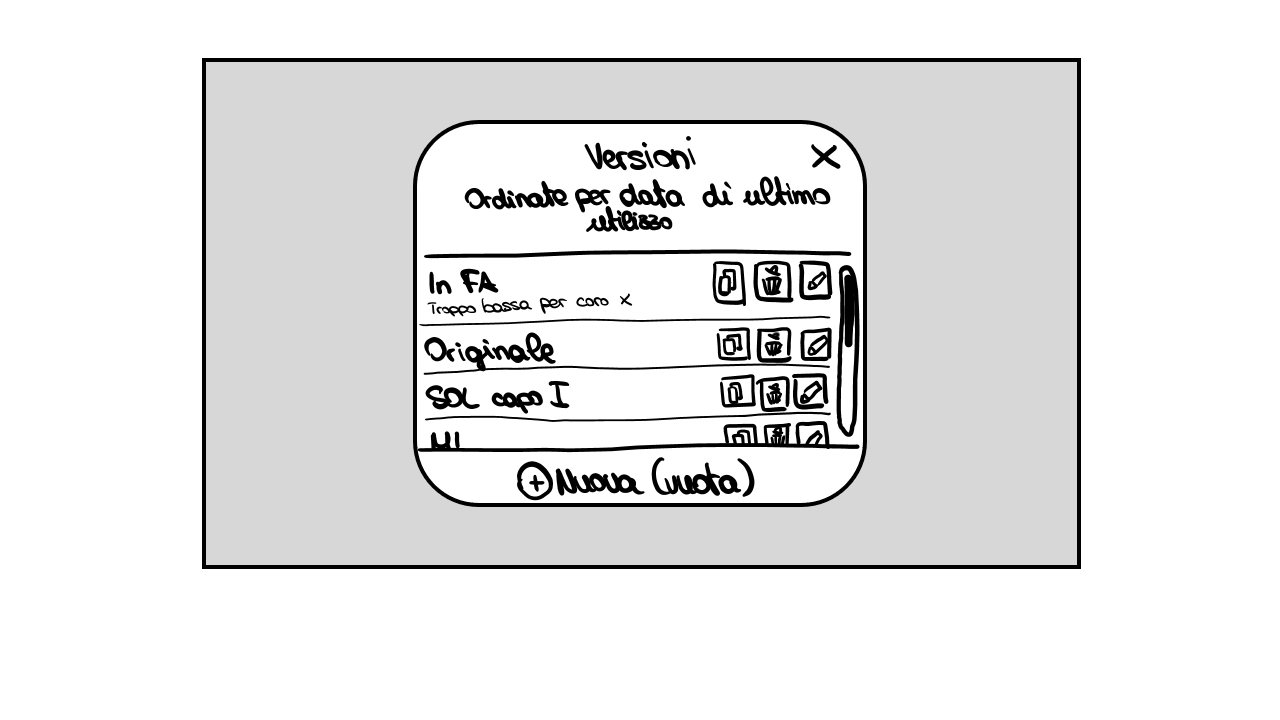 Versioni
Ordinate per data di ultimo
utilizzo
In FA
Troppo bassa per coro X
Originale
SOL capo I
MI
Nuova (vuota)